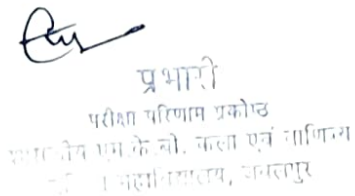 प्रभारी
परीक्षा परिणाम प्रकोष्ठ
एम.के.बी. कला एवं वाणिज्य
महाविद्यालय, जबलपुर